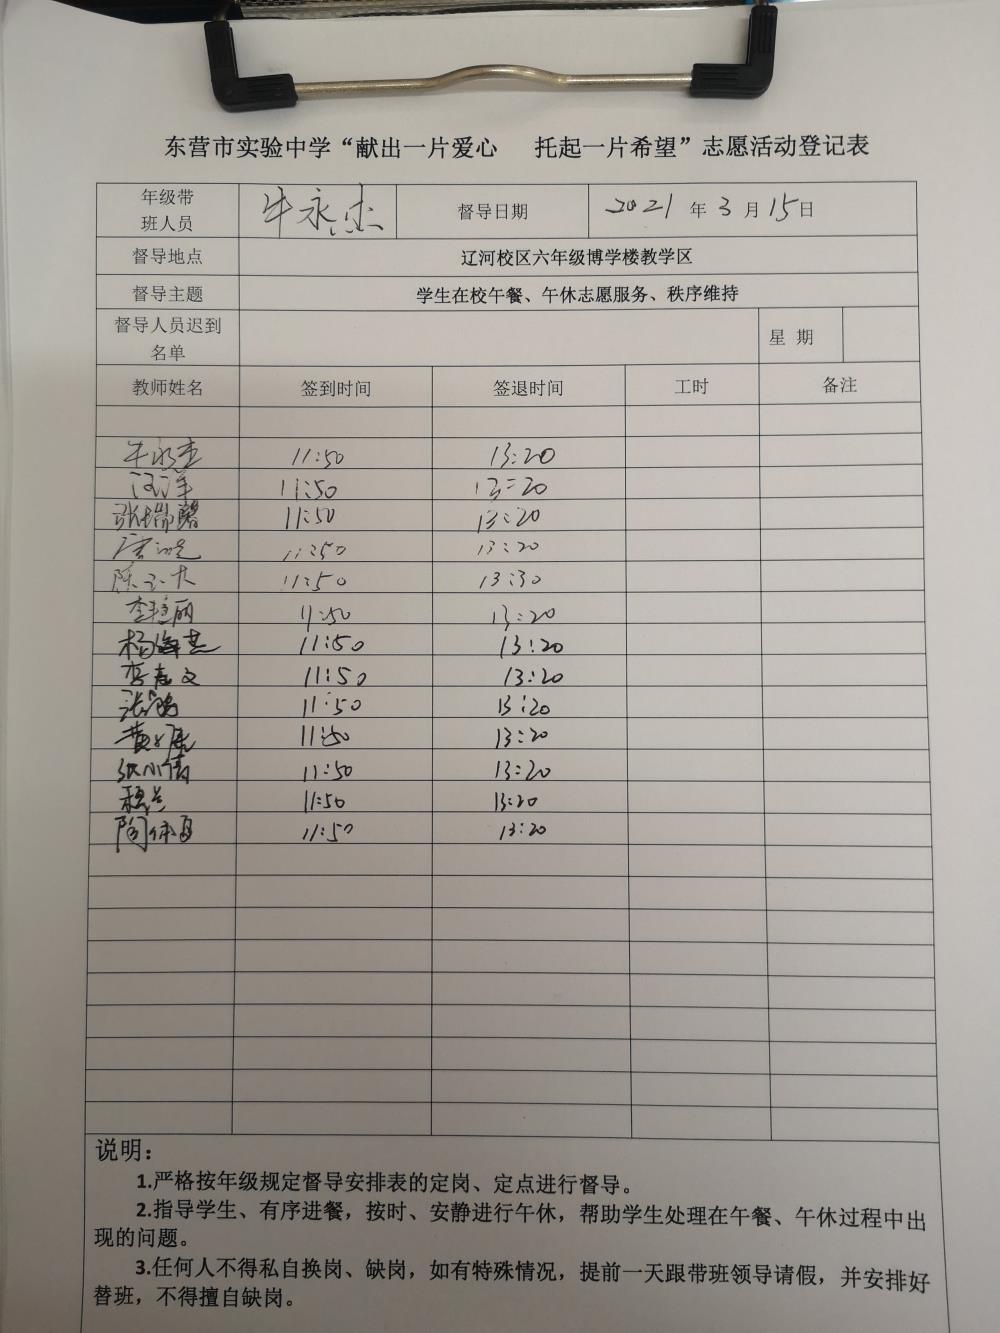 东营市实验中学“献出一片爱心 托起一片希望”志愿活动登记表
年级带班人员 牛永杰 督导日期 2021 年 3 月 15 日
督导地点 辽河校区六年级博学楼教学区
督导主题 学生在校午餐、午休志愿服务、秩序维持
督导人员迟到名单 星 期
教师姓名 签到时间 签退时间 工时 备注
牛永杰 11:50 13:20
汪洋 11:50 13:20
张瑞馨 11:50 13:20
11:50 13:20
陈 11:50 13:30
李艳丽 11:50 13:20
杨海燕 11:50 13:20
李志文 11:50 13:20
张鸿 11:50 13:20
黄 11:50 13:20
张小倩 11:50 13:20
11:50 13:20
陶 11:50 13:20
说明：
1.严格按年级规定督导安排表的定岗、定点进行督导。
2.指导学生、有序进餐，按时、安静进行午休，帮助学生处理在午餐、午休过程中出
现的问题。
3.任何人不得私自换岗、缺岗，如有特殊情况，提前一天跟带班领导请假，并安排好
替班，不得擅自缺岗。